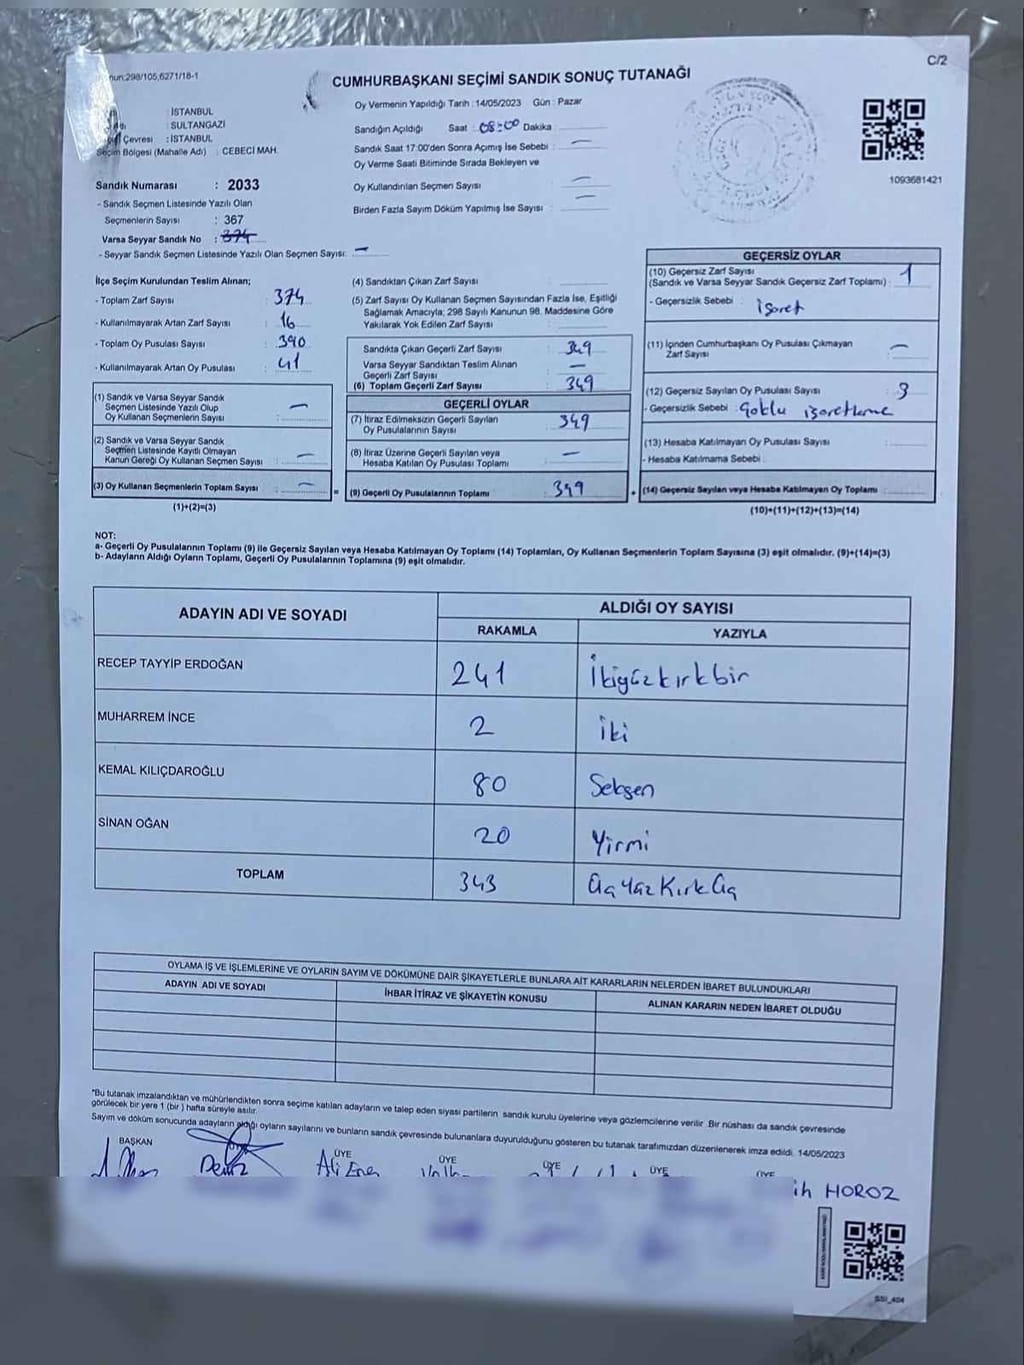 C/2
nun:298/105,6271/18-1
CUMHURBAŞKANI SEÇİMİ SANDIK SONUÇ TUTANAĞI
: İSTANBUL
: SULTANGAZİ
Çevresi : İSTANBUL
Seçim Bölgesi (Mahalle Adı) : CEBECİ MAH.
Sandık Numarası : 2033
- Sandık Seçmen Listesinde Yazılı Olan
Seçmenlerin Sayısı : 367
Varsa Seyyar Sandık No : 374
- Seyyar Sandık Seçmen Listesinde Yazılı Olan Seçmen Sayısı: —
Oy Vermenin Yapıldığı Tarih :14/05/2023 Gün : Pazar
Sandığın Açıldığı Saat : 08:00 Dakika
Sandık Saat 17:00'den Sonra Açımış İse Sebebi : —
Oy Verme Saati Bitiminde Sırada Bekleyen ve
Oy Kullandırılan Seçmen Sayısı : —
Birden Fazla Sayım Döküm Yapılmış İse Sayısı : —
1093681421
İlçe Seçim Kurulundan Teslim Alınan;
- Toplam Zarf Sayısı : 374
- Kullanılmayarak Artan Zarf Sayısı : 16
- Toplam Oy Pusulası Sayısı : 390
- Kullanılmayarak Artan Oy Pusulası : 41
(1) Sandık ve Varsa Seyyar Sandık
Seçmen Listesinde Yazılı Olup
Oy Kullanan Seçmenlerin Sayısı : —
(2) Sandık ve Varsa Seyyar Sandık
Seçmen Listesinde Kayıtlı Olmayan
Kanun Gereği Oy Kullanan Seçmen Sayısı : —
(3) Oy Kullanan Seçmenlerin Toplam Sayısı : —
(1)+(2)=(3)
(4) Sandıktan Çıkan Zarf Sayısı :
(5) Zarf Sayısı Oy Kullanan Seçmen Sayısından Fazla İse, Eşitliği
Sağlamak Amacıyla; 298 Sayılı Kanunun 98. Maddesine Göre
Yakılarak Yok Edilen Zarf Sayısı :
Sandıkta Çıkan Geçerli Zarf Sayısı : 349
Varsa Seyyar Sandıktan Teslim Alınan
Geçerli Zarf Sayısı : —
(6) Toplam Geçerli Zarf Sayısı : 349
GEÇERLİ OYLAR
(7) İtiraz Edilmeksizin Geçerli Sayılan
Oy Pusulalarının Sayısı : 349
(8) İtiraz Üzerine Geçerli Sayılan veya
Hesaba Katılan Oy Pusulası Toplamı : —
= (9) Geçerli Oy Pusulalarının Toplamı : 349
GEÇERSİZ OYLAR
(10) Geçersiz Zarf Sayısı
(Sandık ve Varsa Seyyar Sandık Geçersiz Zarf Toplamı) : 1
- Geçersizlik Sebebi : işaret
(11) İçinden Cumhurbaşkanı Oy Pusulası Çıkmayan
Zarf Sayısı : —
(12) Geçersiz Sayılan Oy Pusulası Sayısı : 3
- Geçersizlik Sebebi : Çoklu işaretleme
(13) Hesaba Katılmayan Oy Pusulası Sayısı :
- Hesaba Katılmama Sebebi :
+ (14) Geçersiz Sayılan veya Hesaba Katılmayan Oy Toplamı :
(10)+(11)+(12)+(13)=(14)
NOT:
a- Geçerli Oy Pusulalarının Toplamı (9) ile Geçersiz Sayılan veya Hesaba Katılmayan Oy Toplamı (14) Toplamları, Oy Kullanan Seçmenlerin Toplam Sayısına (3) eşit olmalıdır. (9)+(14)=(3)
b- Adayların Aldığı Oyların Toplamı, Geçerli Oy Pusulalarının Toplamına (9) eşit olmalıdır.
ADAYIN ADI VE SOYADI ALDIĞI OY SAYISI
RAKAMLA YAZIYLA
RECEP TAYYİP ERDOĞAN 241 İkiyüzkırkbir
MUHARREM İNCE 2 iki
KEMAL KILIÇDAROĞLU 80 Seksen
SİNAN OĞAN 20 Yirmi
TOPLAM 343 Üç Yüz Kırk Üç
OYLAMA İŞ VE İŞLEMLERİNE VE OYLARIN SAYIM VE DÖKÜMÜNE DAİR ŞİKAYETLERLE BUNLARA AİT KARARLARIN NELERDEN İBARET BULUNDUKLARI
ADAYIN ADI VE SOYADI İHBAR İTİRAZ VE ŞİKAYETİN KONUSU ALINAN KARARIN NEDEN İBARET OLDUĞU
*Bu tutanak imzalandıktan ve mühürlendikten sonra seçime katılan adayların ve talep eden siyasi partilerin sandık kurulu üyelerine veya gözlemcilerine verilir .Bir nüshası da sandık çevresinde
görülecek bir yere 1 (bir ) hafta süreyle asılır.
Sayım ve döküm sonucunda adayların aldığı oyların sayılarını ve bunların sandık çevresinde bulunanlara duyurulduğunu gösteren bu tutanak tarafımızdan düzenlenerek imza edildi. 14/05/2023
BAŞKAN ÜYE ÜYE ÜYE ÜYE ÜYE
Deniz Ali Ener
ih HOROZ
SSİ_404